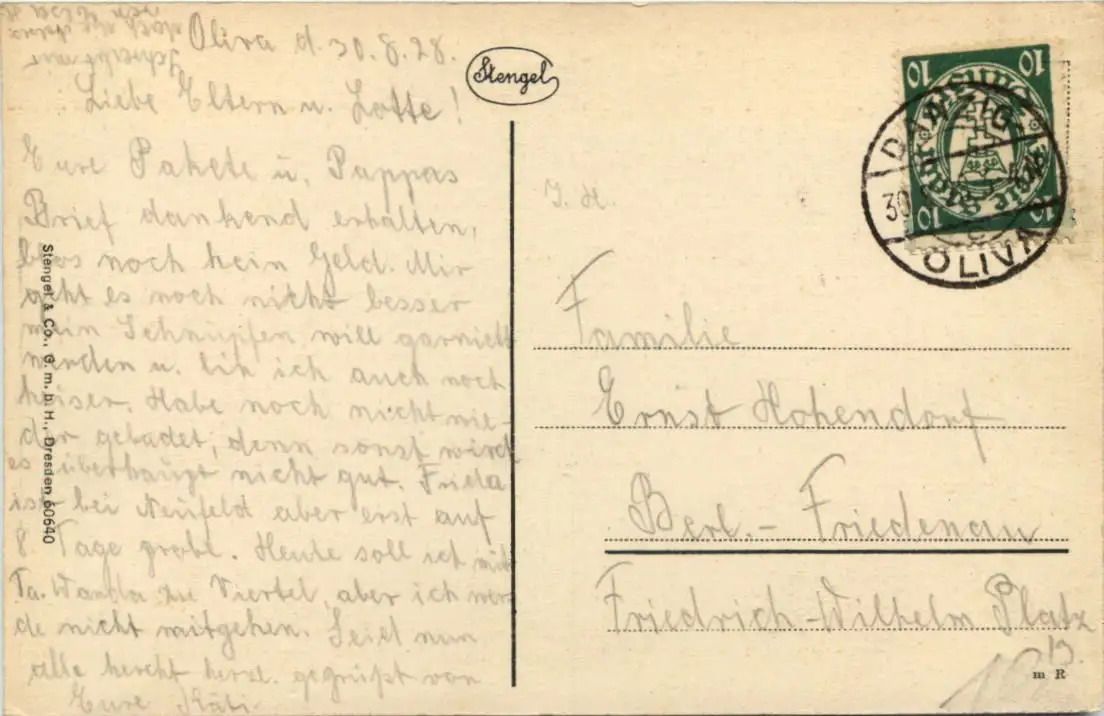 Oliva d. 30.8.28.
Liebe Eltern u. Lotte!
Eure Pakete u. Pappas
Brief dankend erhalten,
blos noch kein Geld. Mir
geht es noch nicht besser
mein Schnupfen will garnicht
werden u. bin ich auch noch
heiser. Habe noch nicht wie-
der gebadet, denn sonst wird
es überhaupt nicht gut. Frieda
ist bei Neufeld aber erst auf
8 Tage probe. Heute soll ich mit
Ta. Wanda zu Viertel, aber ich wer-
de nicht mitgehen. Seid nun
alle herzl. gegrüßt von
Eure Käti.
Schreibt mir
Stengel
Stengel & Co., G. m. b. H., Dresden 60640
10 10
10 10
DANZIG
30
OLIVA
Familie
Ernst Hohendorf
Berl. - Friedenau
Friedrich-Wilhelm Platz
m R